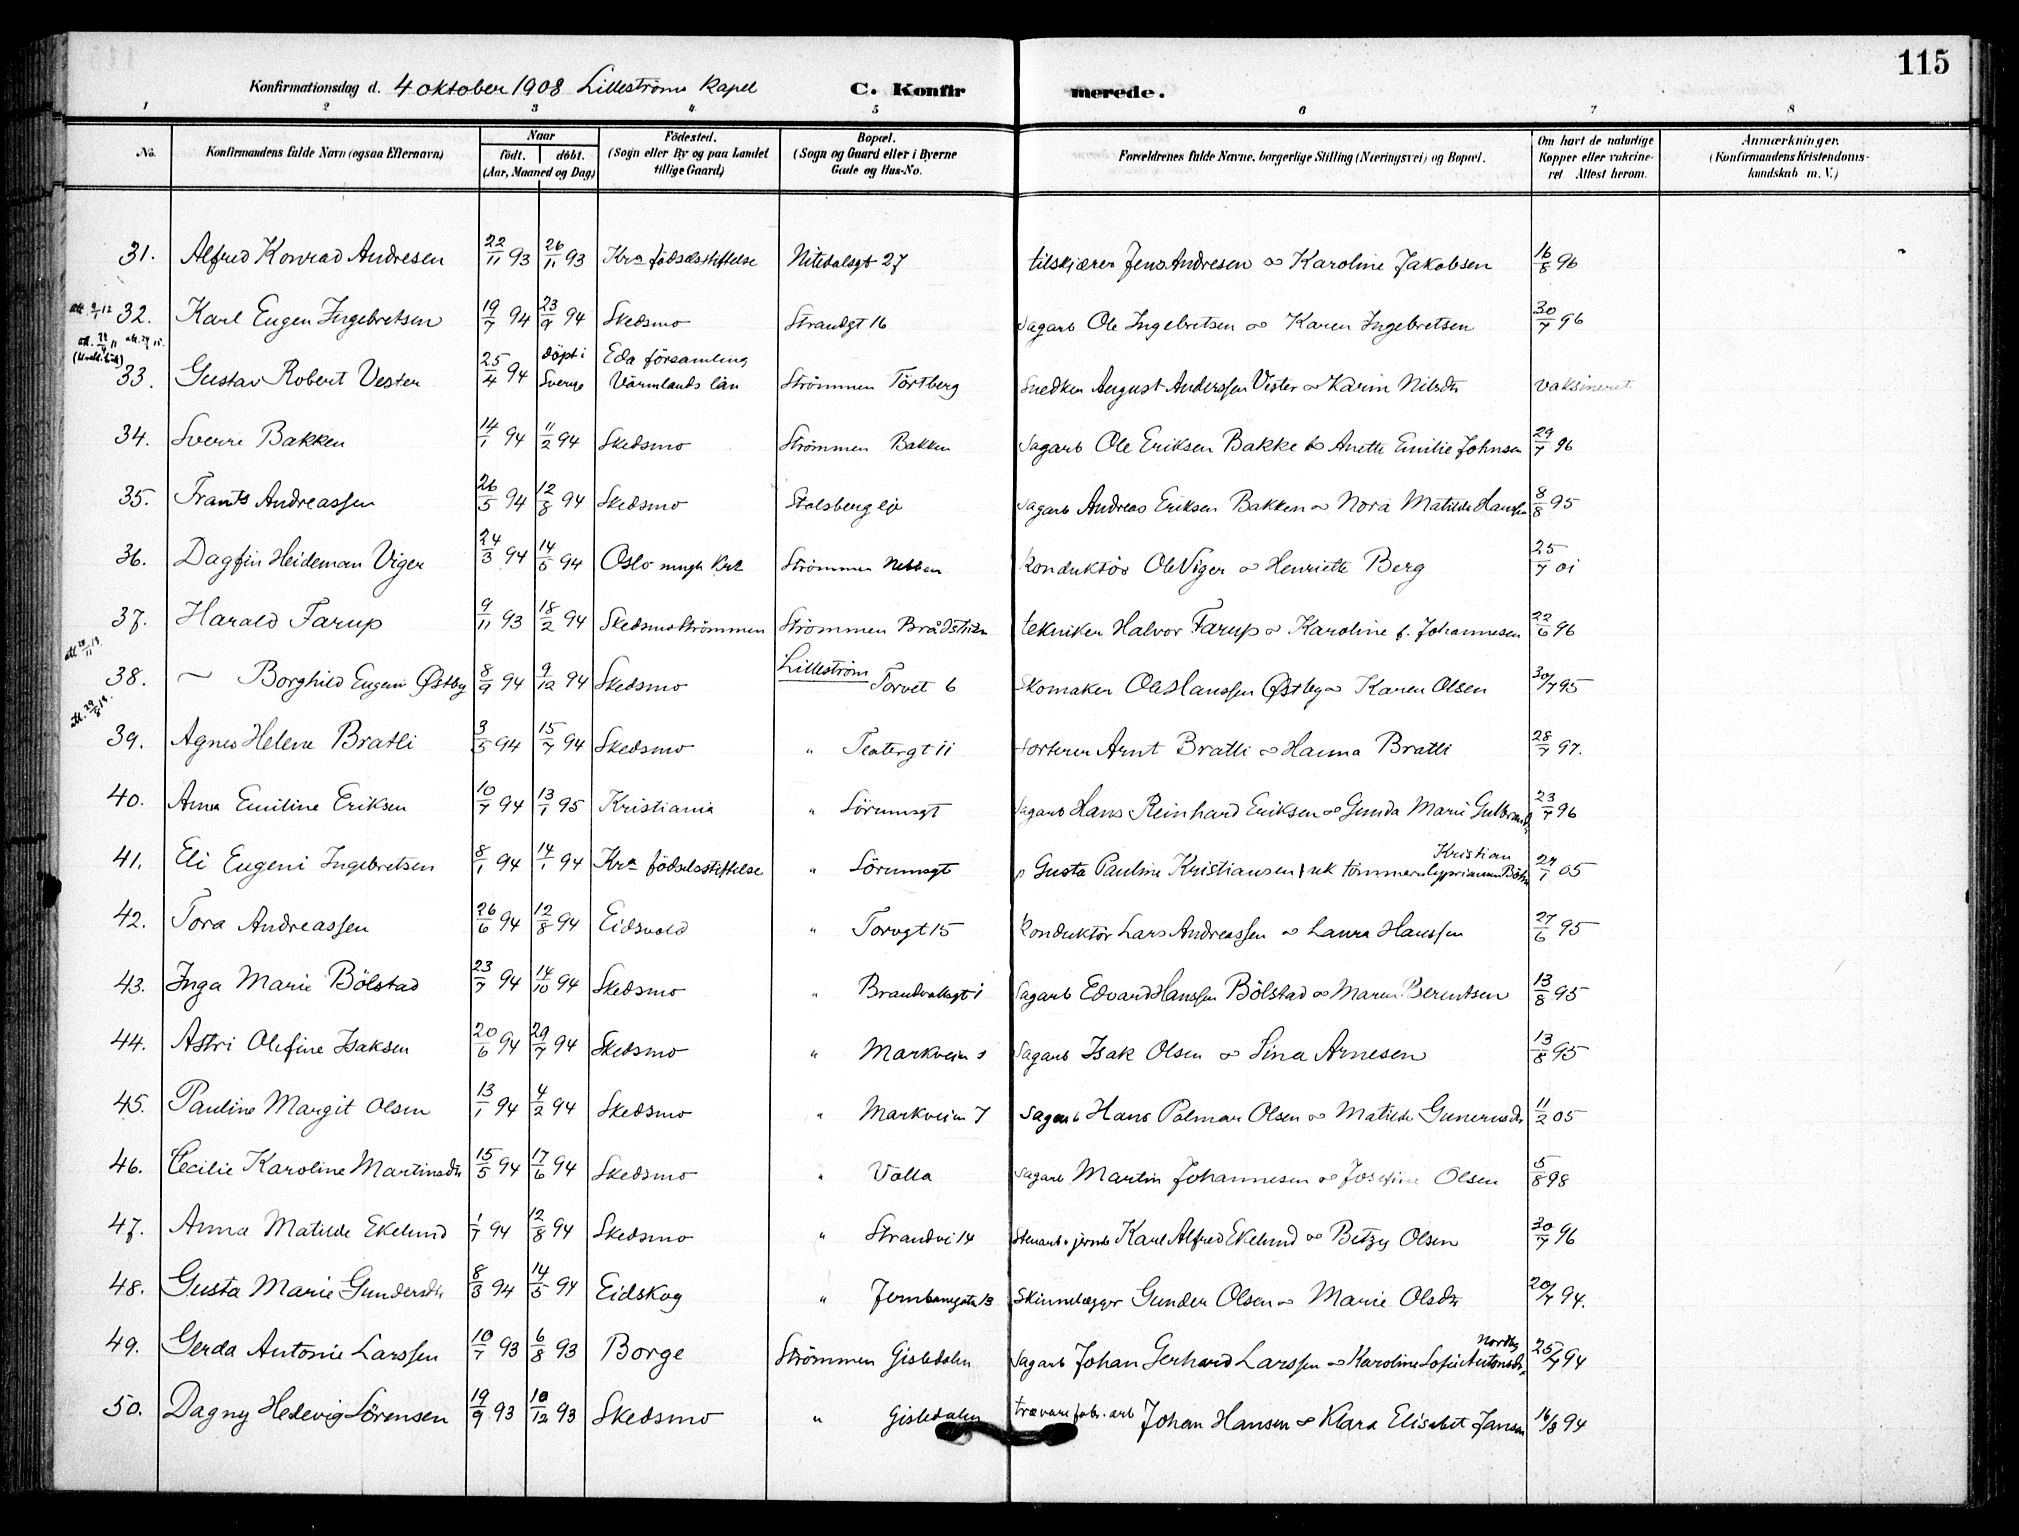 115
Konfirmationsdag d. 4 oktober 1908 Lilleströms kapel C. Konfirmerede.
1 2 3 4 5 6 7 8
No. Konfirmandens fulde Navn (ogsaa Efternavn) Naar födt. döbt. (Aar, Maaned og Dag) Födested. (Sogn eller By og paa Landet tillige Gaard) Bopæl. (Sogn og Gaard eller i Byerne Gade og Hus-No. Forældrenes fulde Navne, borgerlige Stilling (Næringsvei) og Bopæl. Om havt de naturlige Kopper eller vaccineret. Attest herom. Anmærkninger. (Konfirmandens Kristendomskundskab m. V.)
31. Alfred Konrad Andresen 22/11 93 26/11 93 Kra födselsstiftelse Nitedalsgt 27 tilskjærer Jens Andresen & Karoline Jakobsen 16/8 96
32. Karl Eugen Ingebretsen 19/7 94 23/9 94 Skedsmo Strandgt 16 Sagarb Ole Ingebretsen & Karen Ingebretsen 30/7 96
33. Gustav Robert Vester 25/4 94 döpt i Sverge Eda församling Värmlands län Strömmen Törtberg Snedker August Anderssen Vester & Karin Nilsdtr vaksineret
34. Sverre Bakken 14/1 94 11/2 94 Skedsmo Strömmen Bakken Sagarb Ole Eriksen Bakke & Anette Emilie Johnsen 29/7 96
35. Frants Andreassen 26/5 94 12/8 94 Skedsmo Stalsberg eje Sagarb Andreas Eriksen Bakken & Nora Matilde Hanssen 8/8 95
36. Dagfin Heideman Viger 24/3 94 14/5 94 Oslo mngh Kra Strömmen Nebben Konduktör Ole Viger & Henriette Berg 25/7 01
37. Harald Farup 9/11 93 18/2 94 Skedsmo Strömmen Strömmen Brådstien tekniker Halvor Farup & Karoline f. Johannesen 22/6 96
38. Borghild Eugeni Østby 8/9 94 9/12 94 Skedsmo Lilleström Torvet 6 Skomaker Ole Hanssen Østby & Karen Olsen 30/7 95
39. Agnes Helene Bratli 3/5 94 15/7 94 Skedsmo " Teatergt 11 sorterer Arnt Bratli & Hanna Bratli 28/7 97.
40. Anna Emiline Eriksen 10/7 94 13/1 95 Kristiania " Sörumsgt Sagarb Hans Reinhard Eriksen & Gunda Marie Gulbrandsd 23/7 96
41. Eli Eugeni Ingebretsen 8/1 94 14/1 94 Kra födselsstiftelse " Sörumsgt p Gusta Pauline Kristiansen Kristian 27/1 05
42. Tora Andreassen 26/6 94 12/8 94 Eidsvold " Torvgt 15 Konduktör Lars Andreassen & Laura Hanssen 27/6 95
43. Inga Marie Bölstad 23/7 94 14/10 94 Skedsmo " Brandvaltsgt 1 Sagarb Edvard Hanssen Bölstad & Maren Berentsen 13/8 95
44. Astri Olefine Isaksen 20/6 94 29/7 94 Skedsmo " Markveien Sagarb Isak Olsen & Lina Arnesen 13/8 95
45. Pauline Margit Olsen 13/1 94 4/2 94 Skedsmo " Markveien 7 Sagarb Hans Palmar Olsen & Matilde Gunerusdtr 11/2 05
46. Cecilie Karoline Martinsdtr 15/5 94 17/6 94 Skedsmo " Volla Sagarb Martin Johannesen & Josefine Olsen 5/8 98
47. Anna Matilde Ekelund 1/7 94 12/8 94 Skedsmo " Strandvei 14 Stenarb. Karl Alfred Ekelund & Betzy Olsen 30/7 96
48. Gusta Marie Gundersdtr 8/3 94 14/5 94 Eidskog " Jernbanegata 13 Skinnelægger Gunder Olsen & Marie Olsdtr 20/7 94.
49. Gerda Antonie Larssen 10/7 93 6/8 93 Borge Strömmen Gisledalen Sagarb Johan Gerhard Larssen & Karoline Sofie Antonsdtr Nordby 25/7 94
50. Dagny Hedevig Sörensen 19/9 93 10/12 93 Skedsmo " Gisledalen trævarefabr. arb Johan Hansen & Klara Elisabet Jansen 16/8 94